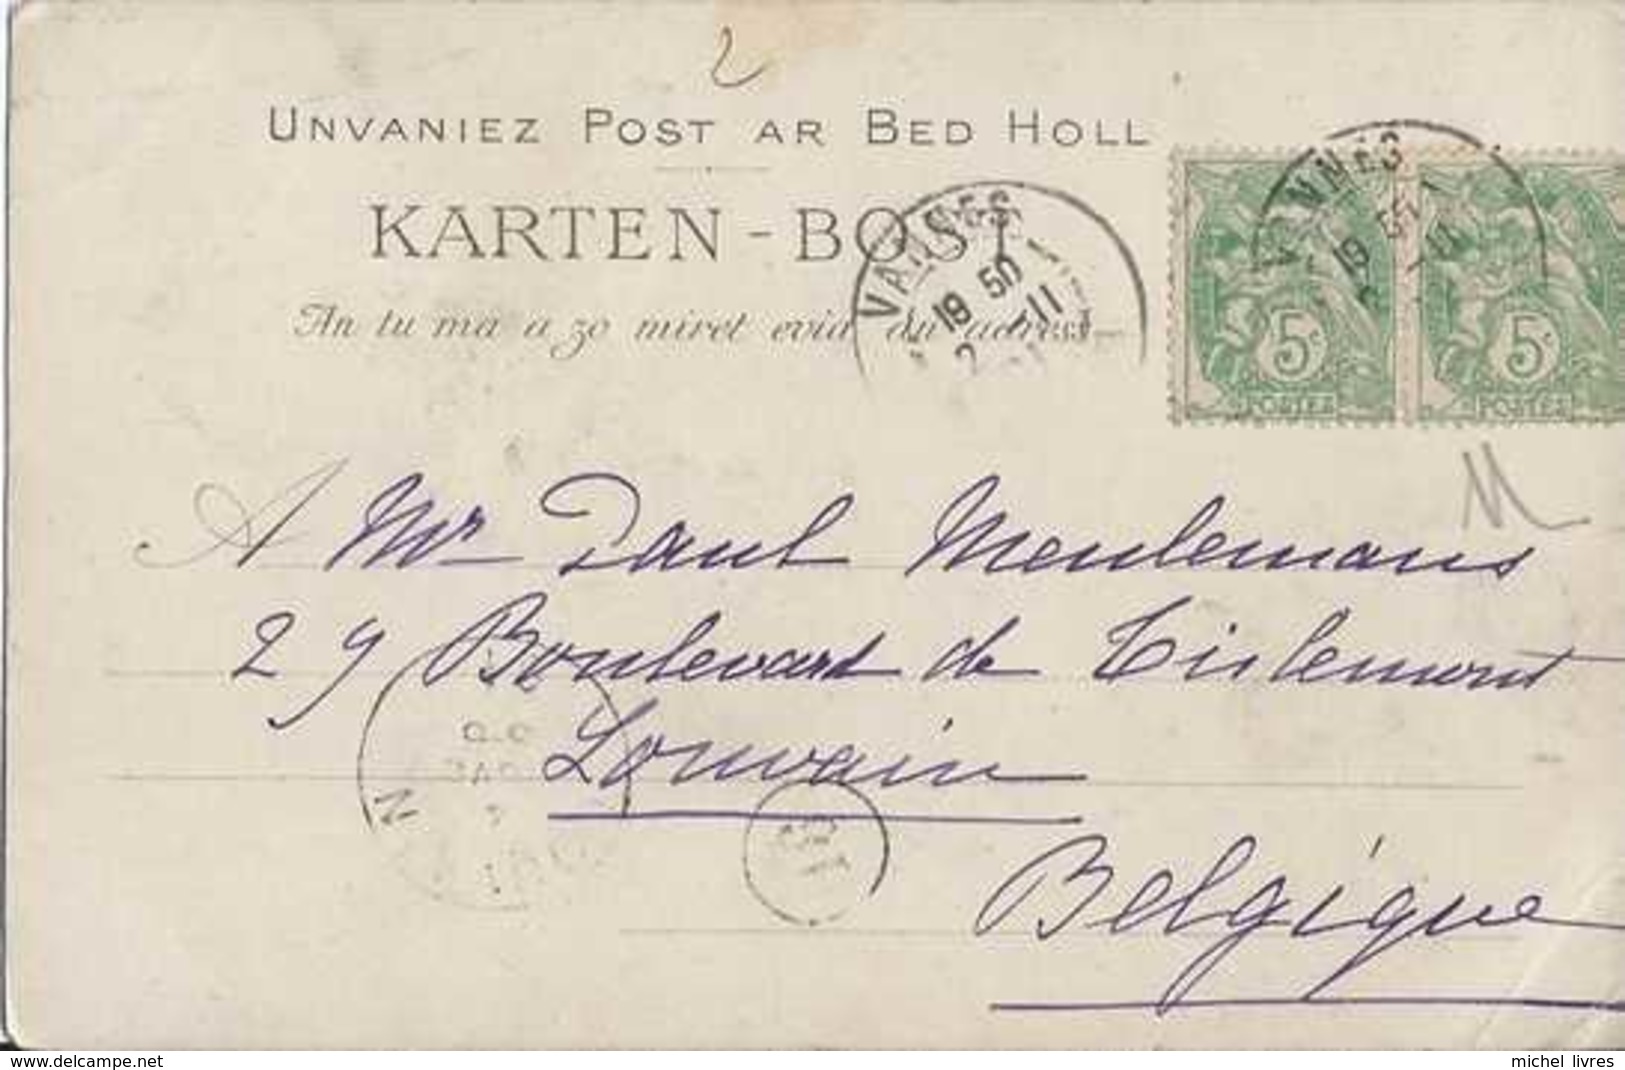 2
UNVANIEZ POST AR BED HOLL
KARTEN-BOST
An tu ma a zo miret evid an adress
VANNES
19 50
2 -11
VANNES
19 50
5c 5c
POSTES POSTES
A Mr Paul Meulemans
29 Boulevard de Tirlemont
Louvain
Belgique
www.delcampe.net
michel_livres